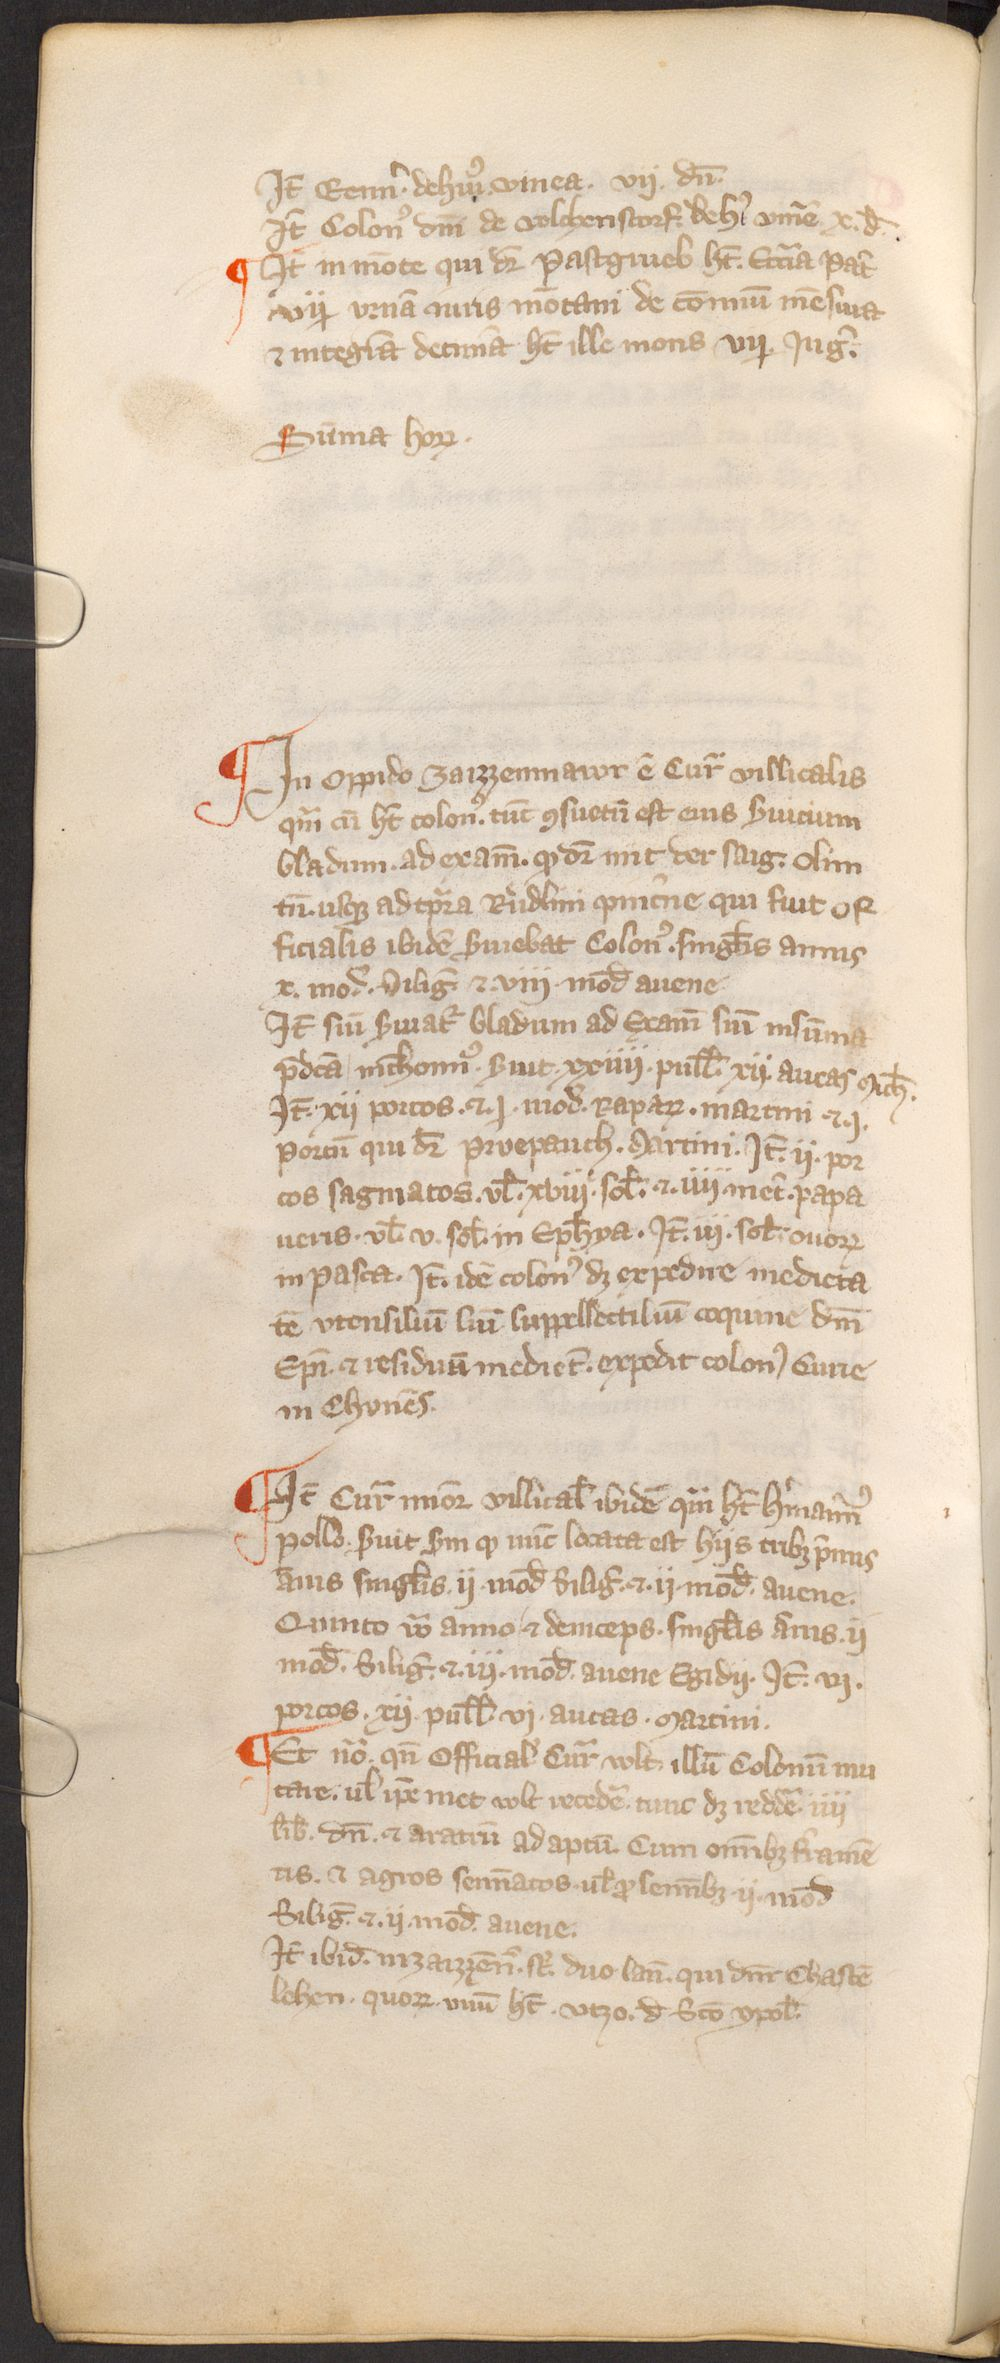 It̄ Genn̄. dehui᷒. vinea. vij. dn̄.
It̄ Colon᷒ dn̄i de volchenstorf. de h᷒ vinee x. d̄.
¶ It̄ in mōte qui dr̄ Pastgrueb ht̄. Eccīa Pat̄
vij vrnā iuris mōtani de cōmuni mēsura
⁊ integrā decimā ht̄ ille mons vij Jug̃.
Sūma hoꝝ.
¶ In oppido Zaizzenmawr ē Cur̄ villicalis
qm̄ cū ht̄ colon᷒. tūc ꝯsuetū est eius ẜuicium
bladum. ad exam̄. qd dr̄ mit der saig. Olim
tn̄. usqꝫ ad tp̄ra Rudlini qui fuit of
ficialis ibidē ẜuiebat Colon᷒. singl̄is annis
x. mod̄. Silig̃ ⁊. viii. mod̄ avene
It̄ siue ẜuiat̄ bladum ad Exam̄ siue in sūma
p̄dcā ẜuit. xxiiii. pull̄. xij. aucas Mich̄.
It̄. xij porcos. ⁊. j. mod̄. rapaꝝ. martini ⁊. j.
porcū qui dr̄ Pruepauch. Martini. It̄. ij. por
cos sagmatos. vl̄. xviij. sol̄. ⁊. iiii. met̄. papa
ueris. vl̄. v. sol̄. in Eph̄ya. It̄. iij. sol̄. ouoꝝ
in Pasca. It̄. idē colon᷒ dꝫ expedire medieta
tē vtensiliū siue suppellectiliū coquine dn̄i
Ep̄i. ⁊ residuū mediet̄. expedit colon᷒ Curie
in Chunēs.
¶ It̄ Cur̄ minor villical̄ ibidē quā ht̄ h̄mann᷒
Polld. ẜuit ẜm qd nūc locata est hijs tribꝫ p̄mis
ānis singl̄is. ij. mod̄ Silig̃. ⁊. ij. mod̄. avene.
Quinto vō anno ⁊ deinceps. singl̄is ānis. ij
mod̄. Silig̃. ⁊. iij. mod̄. avene Egidij. It̄. vj.
porcos. xij. pull̄. vi. aucas. Martini.
¶ Et no᷒. qn̄ Official᷒ Cur̄ vult illū Colonū mu
tare. ul̄ ip̄e met vult recedē. tunc dꝫ reddē. iiij
lib̄. dn̄. ⁊ aratrū adaptū. Cum omībꝫ ferramē
tis. ⁊ agros semīatos. ul̄ ꝓ semībꝫ. ij. mod̄
Silig̃. ⁊. ij. mod̄. avene.
It̄ ibid̄. in zaizzēm᷒. st̄. duo lan̄. qui dn̄r Chastē
lehen. quoꝝ. vnū ht̄. vtzo. d̄ Scō ypol̄.